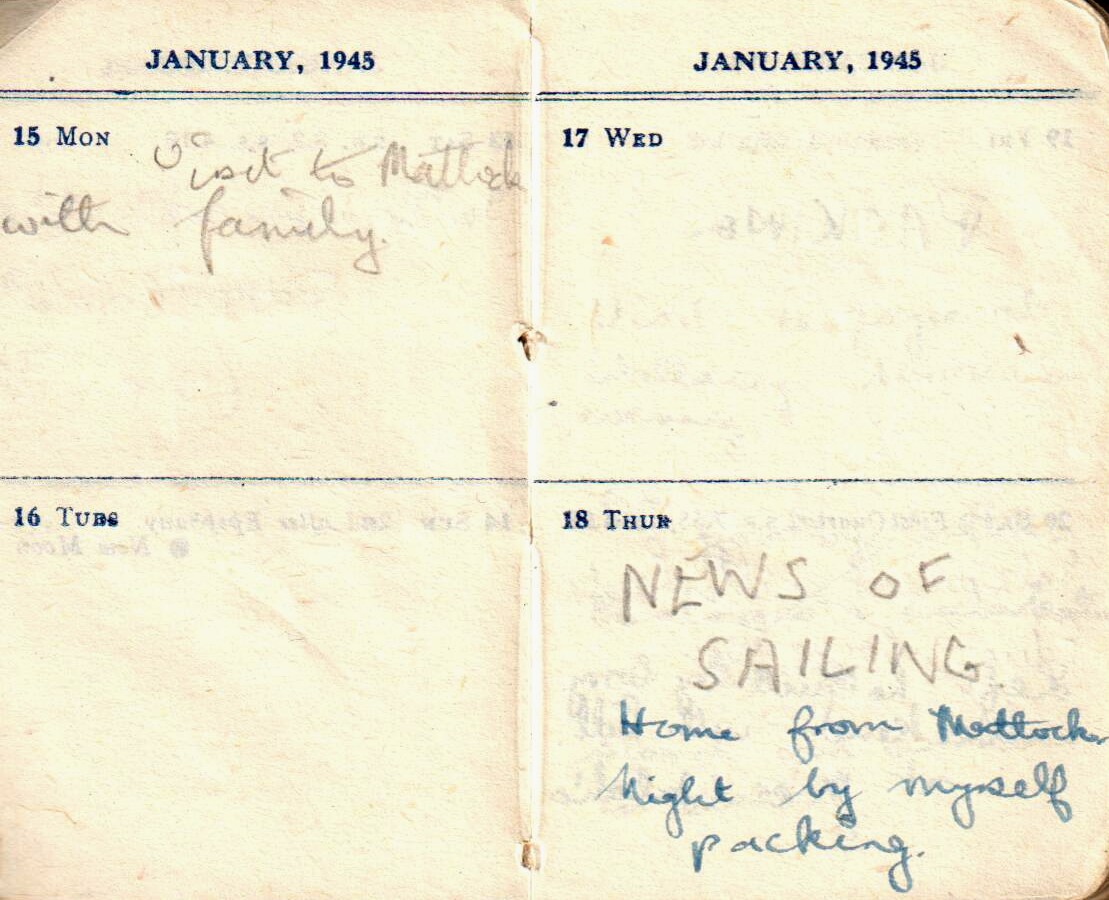 JANUARY, 1945
15 MON
Visit to Matlock
with family.
16 TUES
JANUARY, 1945
17 WED
18 THUR
NEWS OF
SAILING.
Home from Matlock
Night by myself
packing.